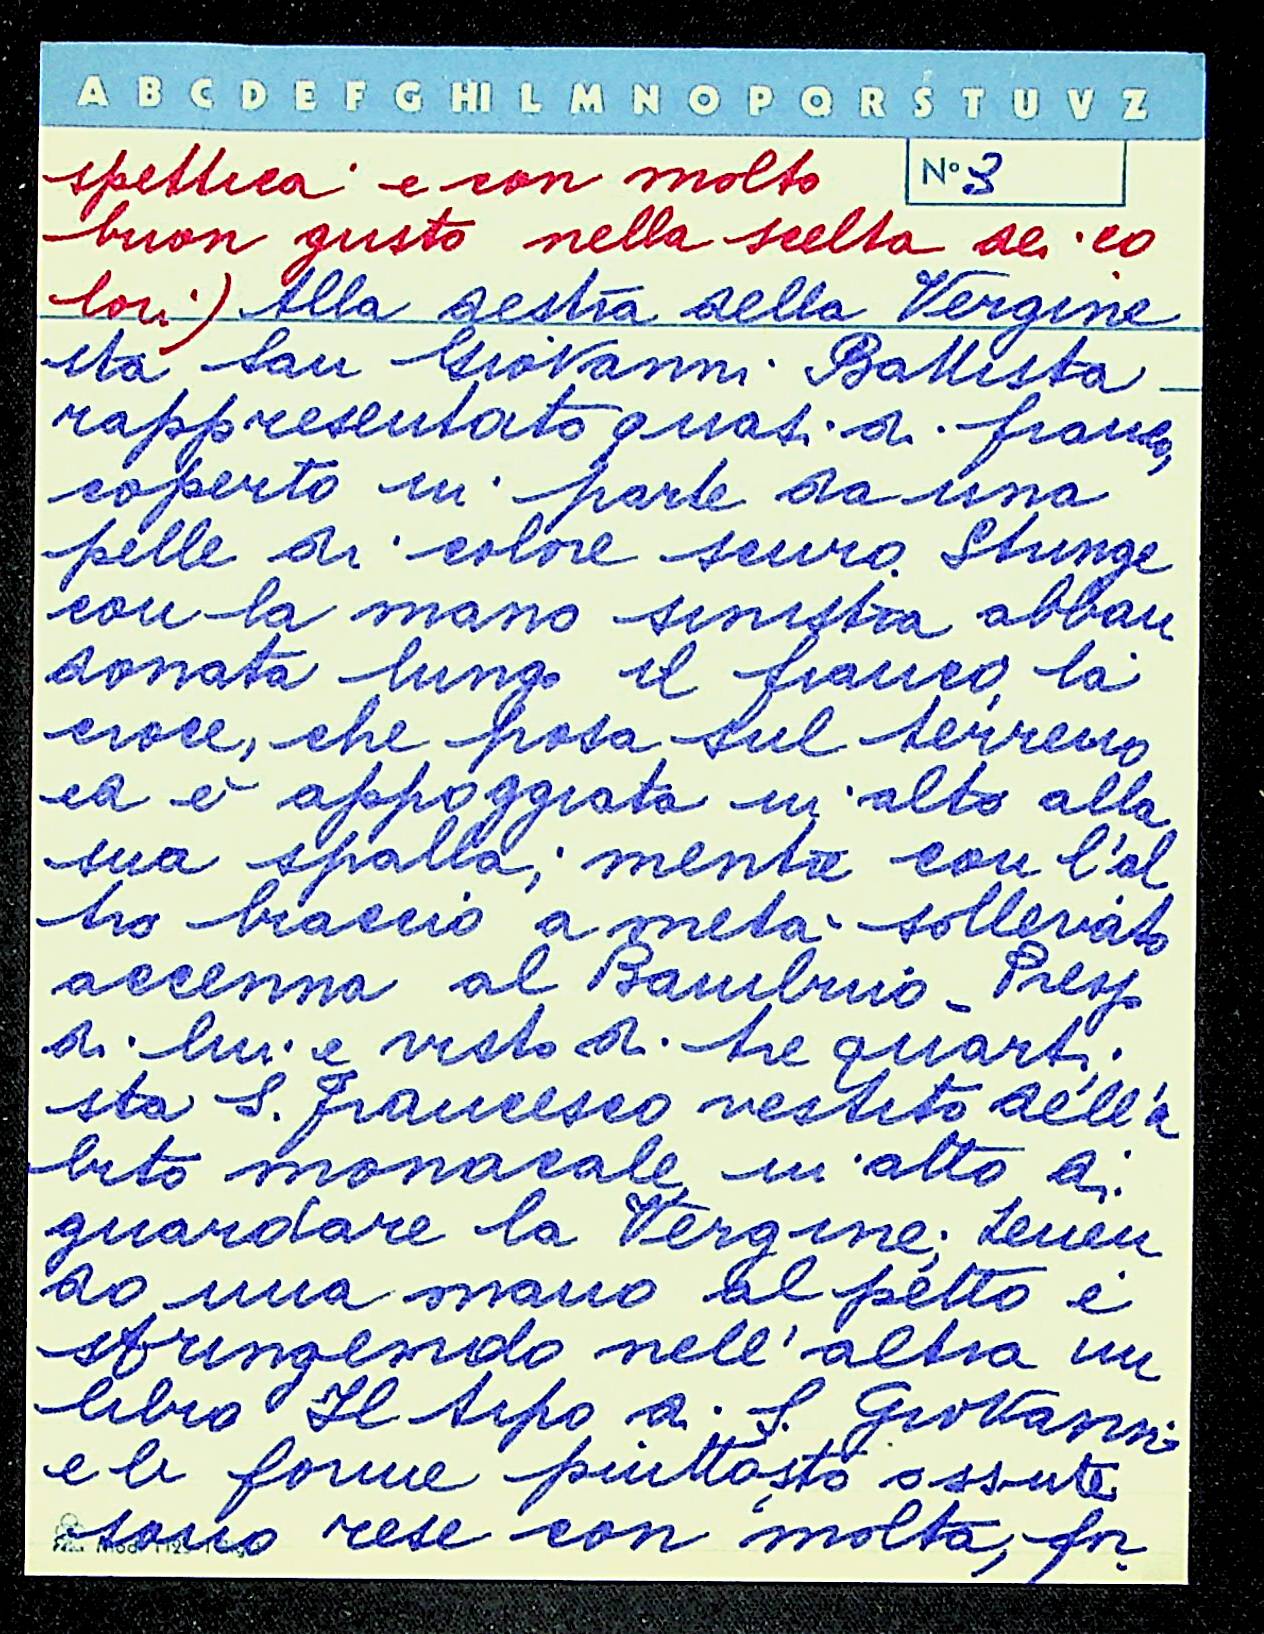 A B C D E F G HI L M N O P Q R S T U V Z
N° 3
spettica e con molto
buon gusto nella scelta dei co
lori) Alla destra della Vergine
sta San Giovanni Battista
rappresentato quasi di fianco,
coperto in parte da una
pelle di colore scuro. Stringe
con la mano sinistra abban
donata lungo il fianco, la
croce, che posa sul terreno
ed è appoggiata in alto alla
sua spalla; mentre con l'al
tro braccio a metà sollevato
accenna al Bambino - Presso
di lui e visto di tre quarti
sta S. Francesco vestito dell'a
bito monacale in atto di
guardare la Vergine, tenen
do una mano al petto e
stringendo nell'altra un
libro Il tipo di S. Giovanni
e le forme piuttosto ossute
sono rese con molta, for